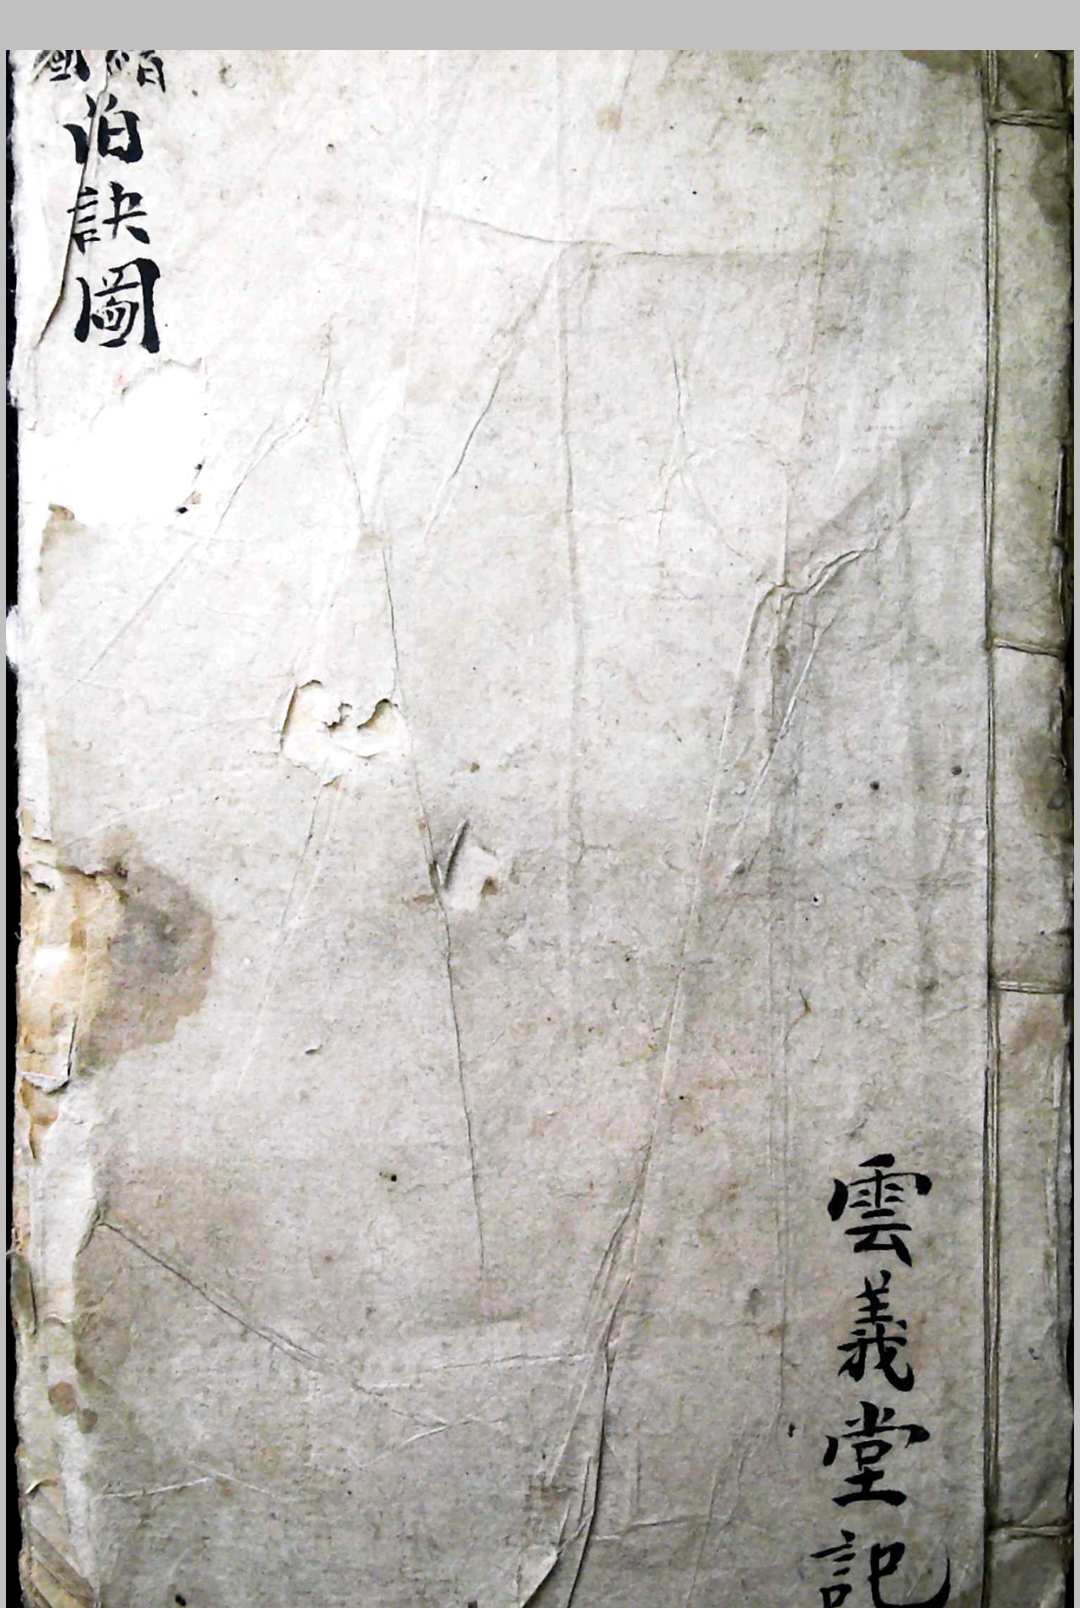 伯訣圖
雲義堂記